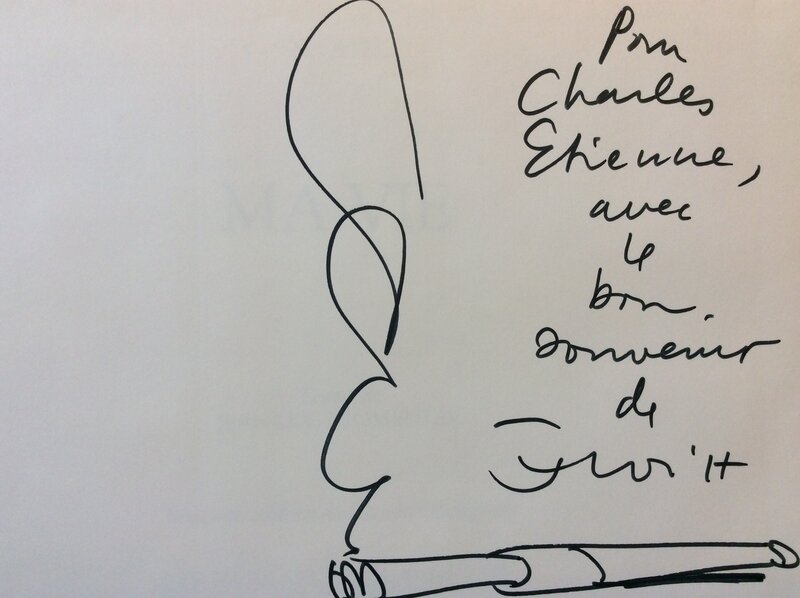 Pour
Charles
Etienne,
avec
le
bon
souvenir
de
MA VIE